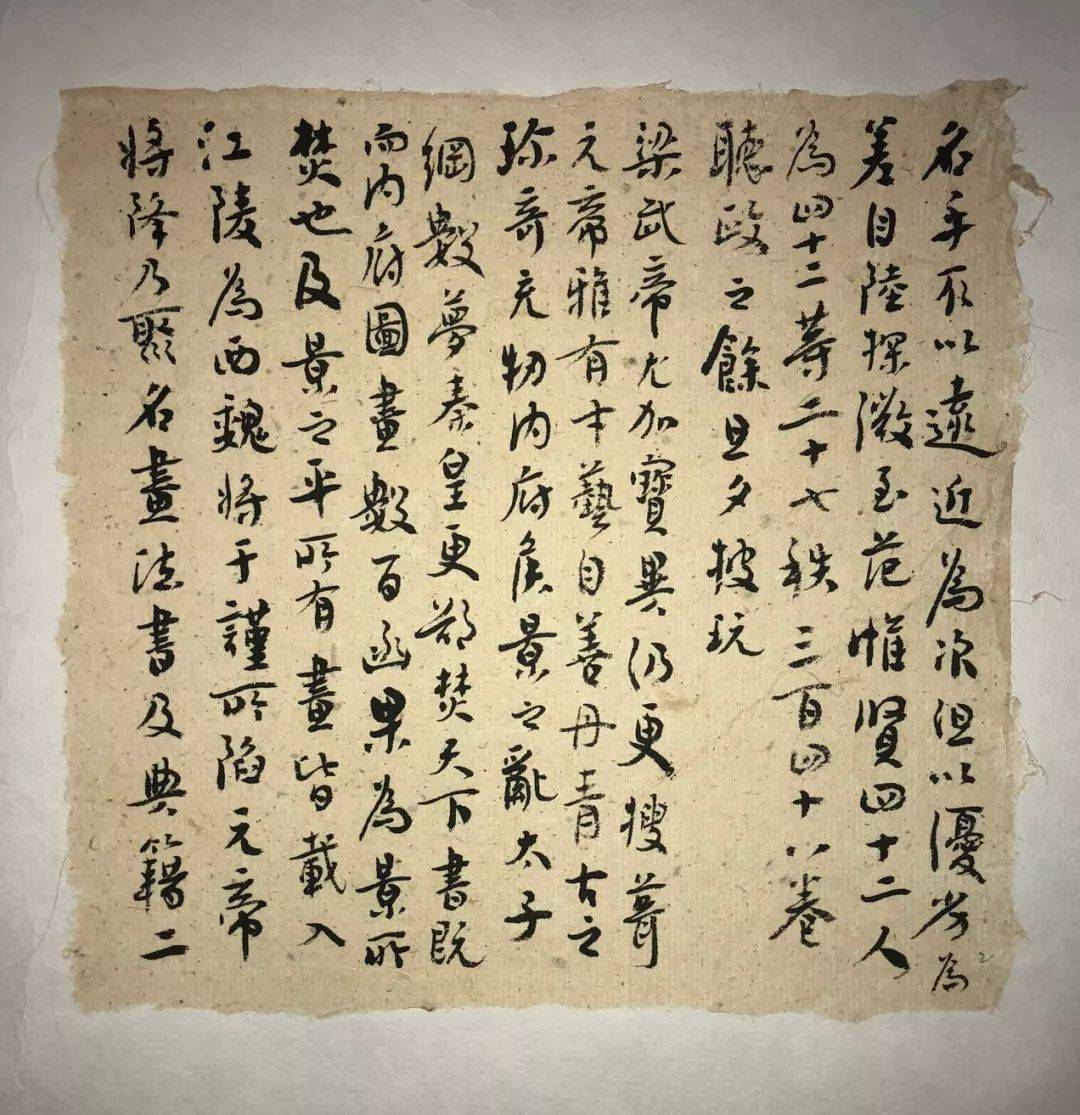 名手不以遠近為次但以優劣為
差自陸探微至范惟賢四十二人
為四十二等二十七秩三百四十八卷
聽政之餘旦夕披玩
梁武帝尤加寶異仍更搜葺
元帝雅有才藝自善丹青古之
珍奇充牣內府侯景之亂太子
綱數夢秦皇更欲焚天下書既
而內府圖畫數百函果為景所
焚也及景之平所有畫皆載入
江陵為西魏將于謹所陷元帝
將降乃聚名畫法書及典籍二